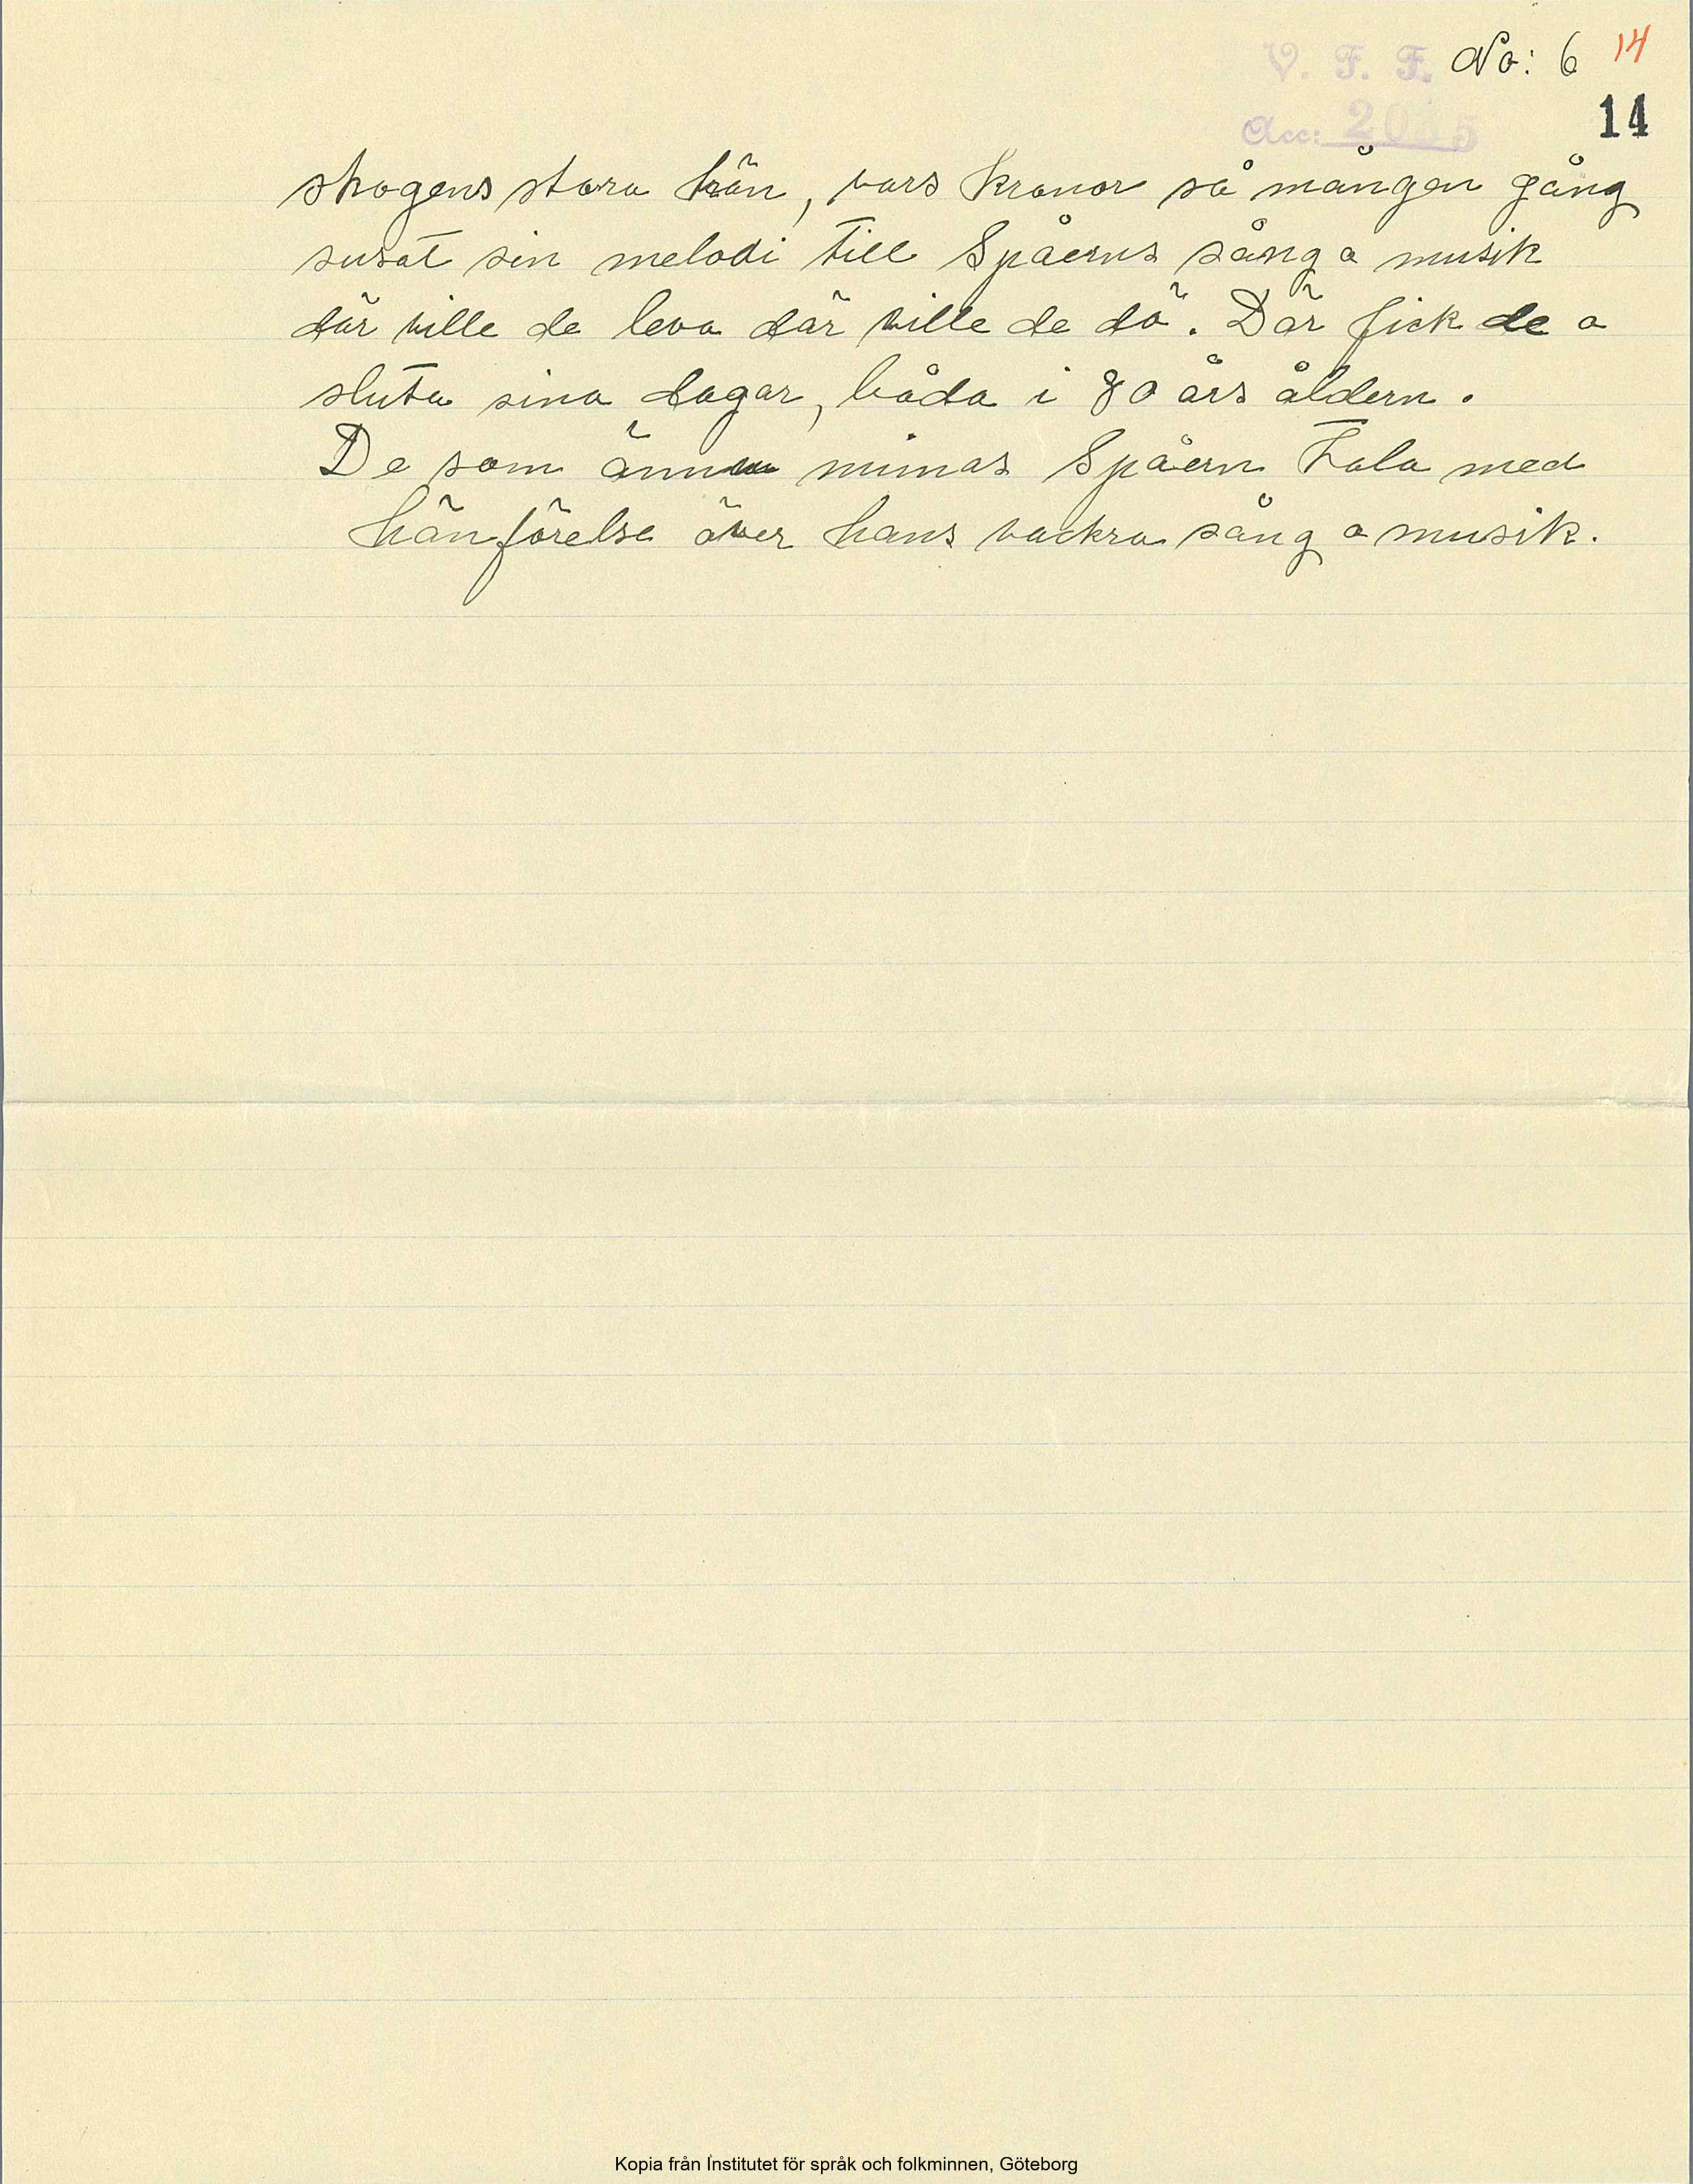 V. F. F. No: 6 14
Acc: 14
skogens stora trän, vars kronor så mången gång
susat sin melodi till Spåerns sång o musik
där ville de leva där ville de dö. Där fick de o
sluta sina dagar, båda i 80 års åldern.
De som ännu minnas Spåern Tala med
hänförelse över hans vackra sång o musik.
Kopia från Institutet för språk och folkminnen, Göteborg